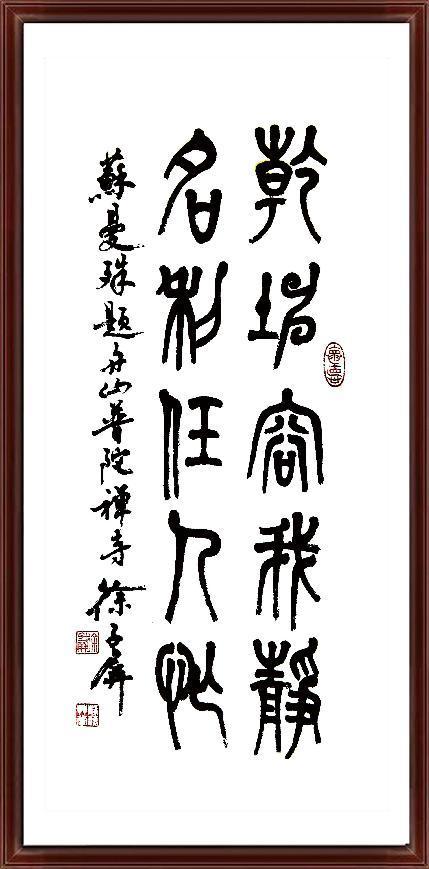 乾坤容我靜
名利任人忙
蘇曼殊題舟山普陀禪寺 徐